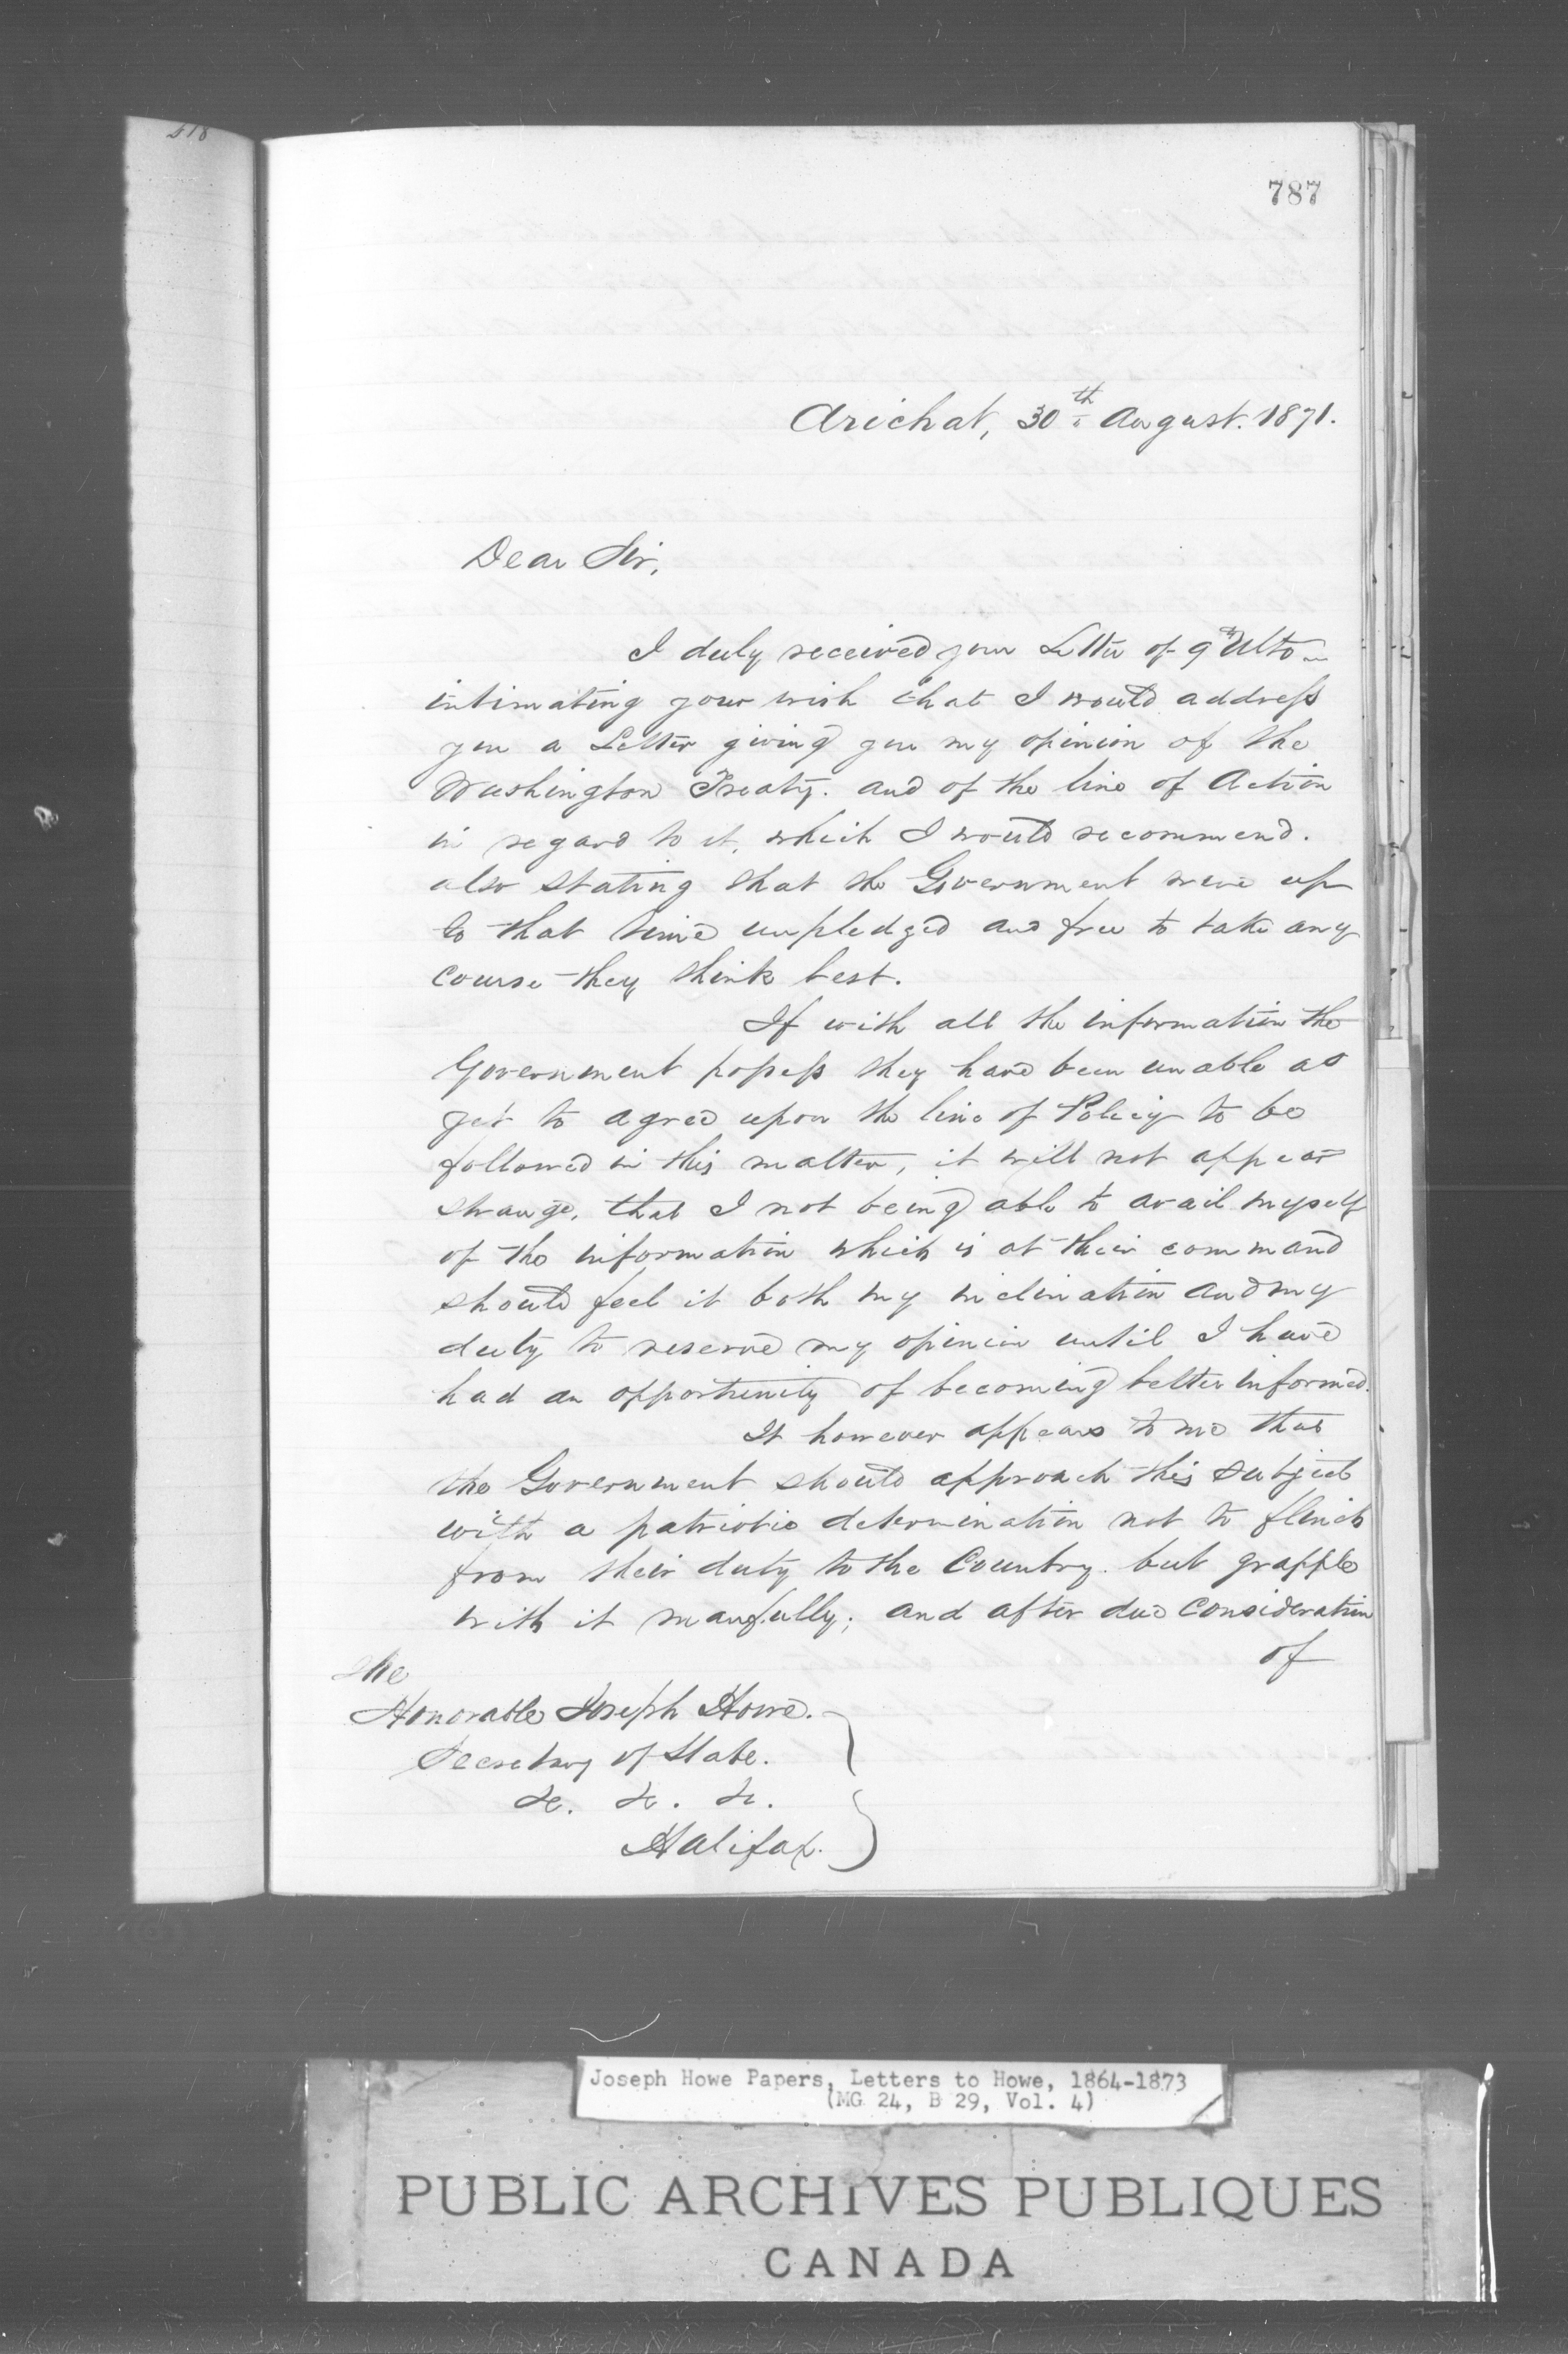 787
Arichat, 30th August. 1871.
Dear Sir,
I duly received your Letter of 9th Ulto
intimating your wish that I would address
you a Letter giving you my opinion of the
Washington Treaty. and of the line of Action
in regard to it, which I would recommend.
also stating that the Government were up
to that time unpledged and free to take any
course they think best.
If with all the information the
Government possess they have been unable as
yet to agree upon the line of Policy to be
followed in this matter, it will not appear
strange, that I not being able to avail myself
of the information which is at their command
should feel it both my inclination and my
duty to reserve my opinion until I have
had an opportunity of becoming better informed.
It however appears to me that
the Government should approach this subject
with a patriotic determination not to flinch
from their duty to the Country. but grapple
with it manfully; and after due consideration
of
The
Honorable Joseph Howe.
Secretary of State.
&c. &c. &c.
Halifax.
Joseph Howe Papers, Letters to Howe, 1864-1873
(MG 24, B 29, Vol. 4)
PUBLIC ARCHIVES PUBLIQUES
CANADA